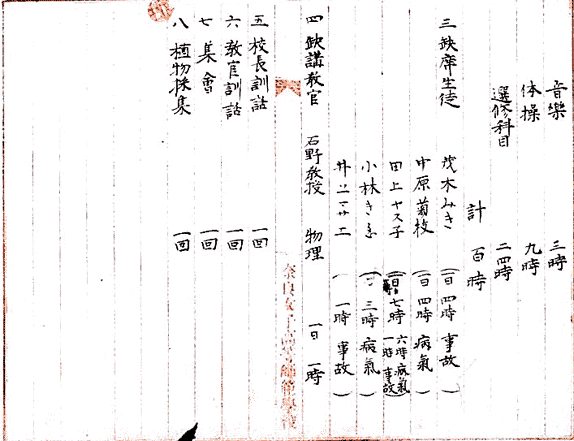 音樂 三時
体操 九時
選修科目 二四時
計 百時
三 缺席生徒 茂木みき (一日 四時 事故)
中原菊枝 (一日 四時 病氣)
田上ヤス子 (一日 七時 六時病氣 一時事故)
小林きゑ (〃 三時 病氣)
井上 ( 一時 事故)
四 缺講教官 石野教授 物理 一日 一時
五 校長訓話 一回
六 教官訓話 一回
七 集會 一回
八 植物採集 一回
奈良女子高等師範學校